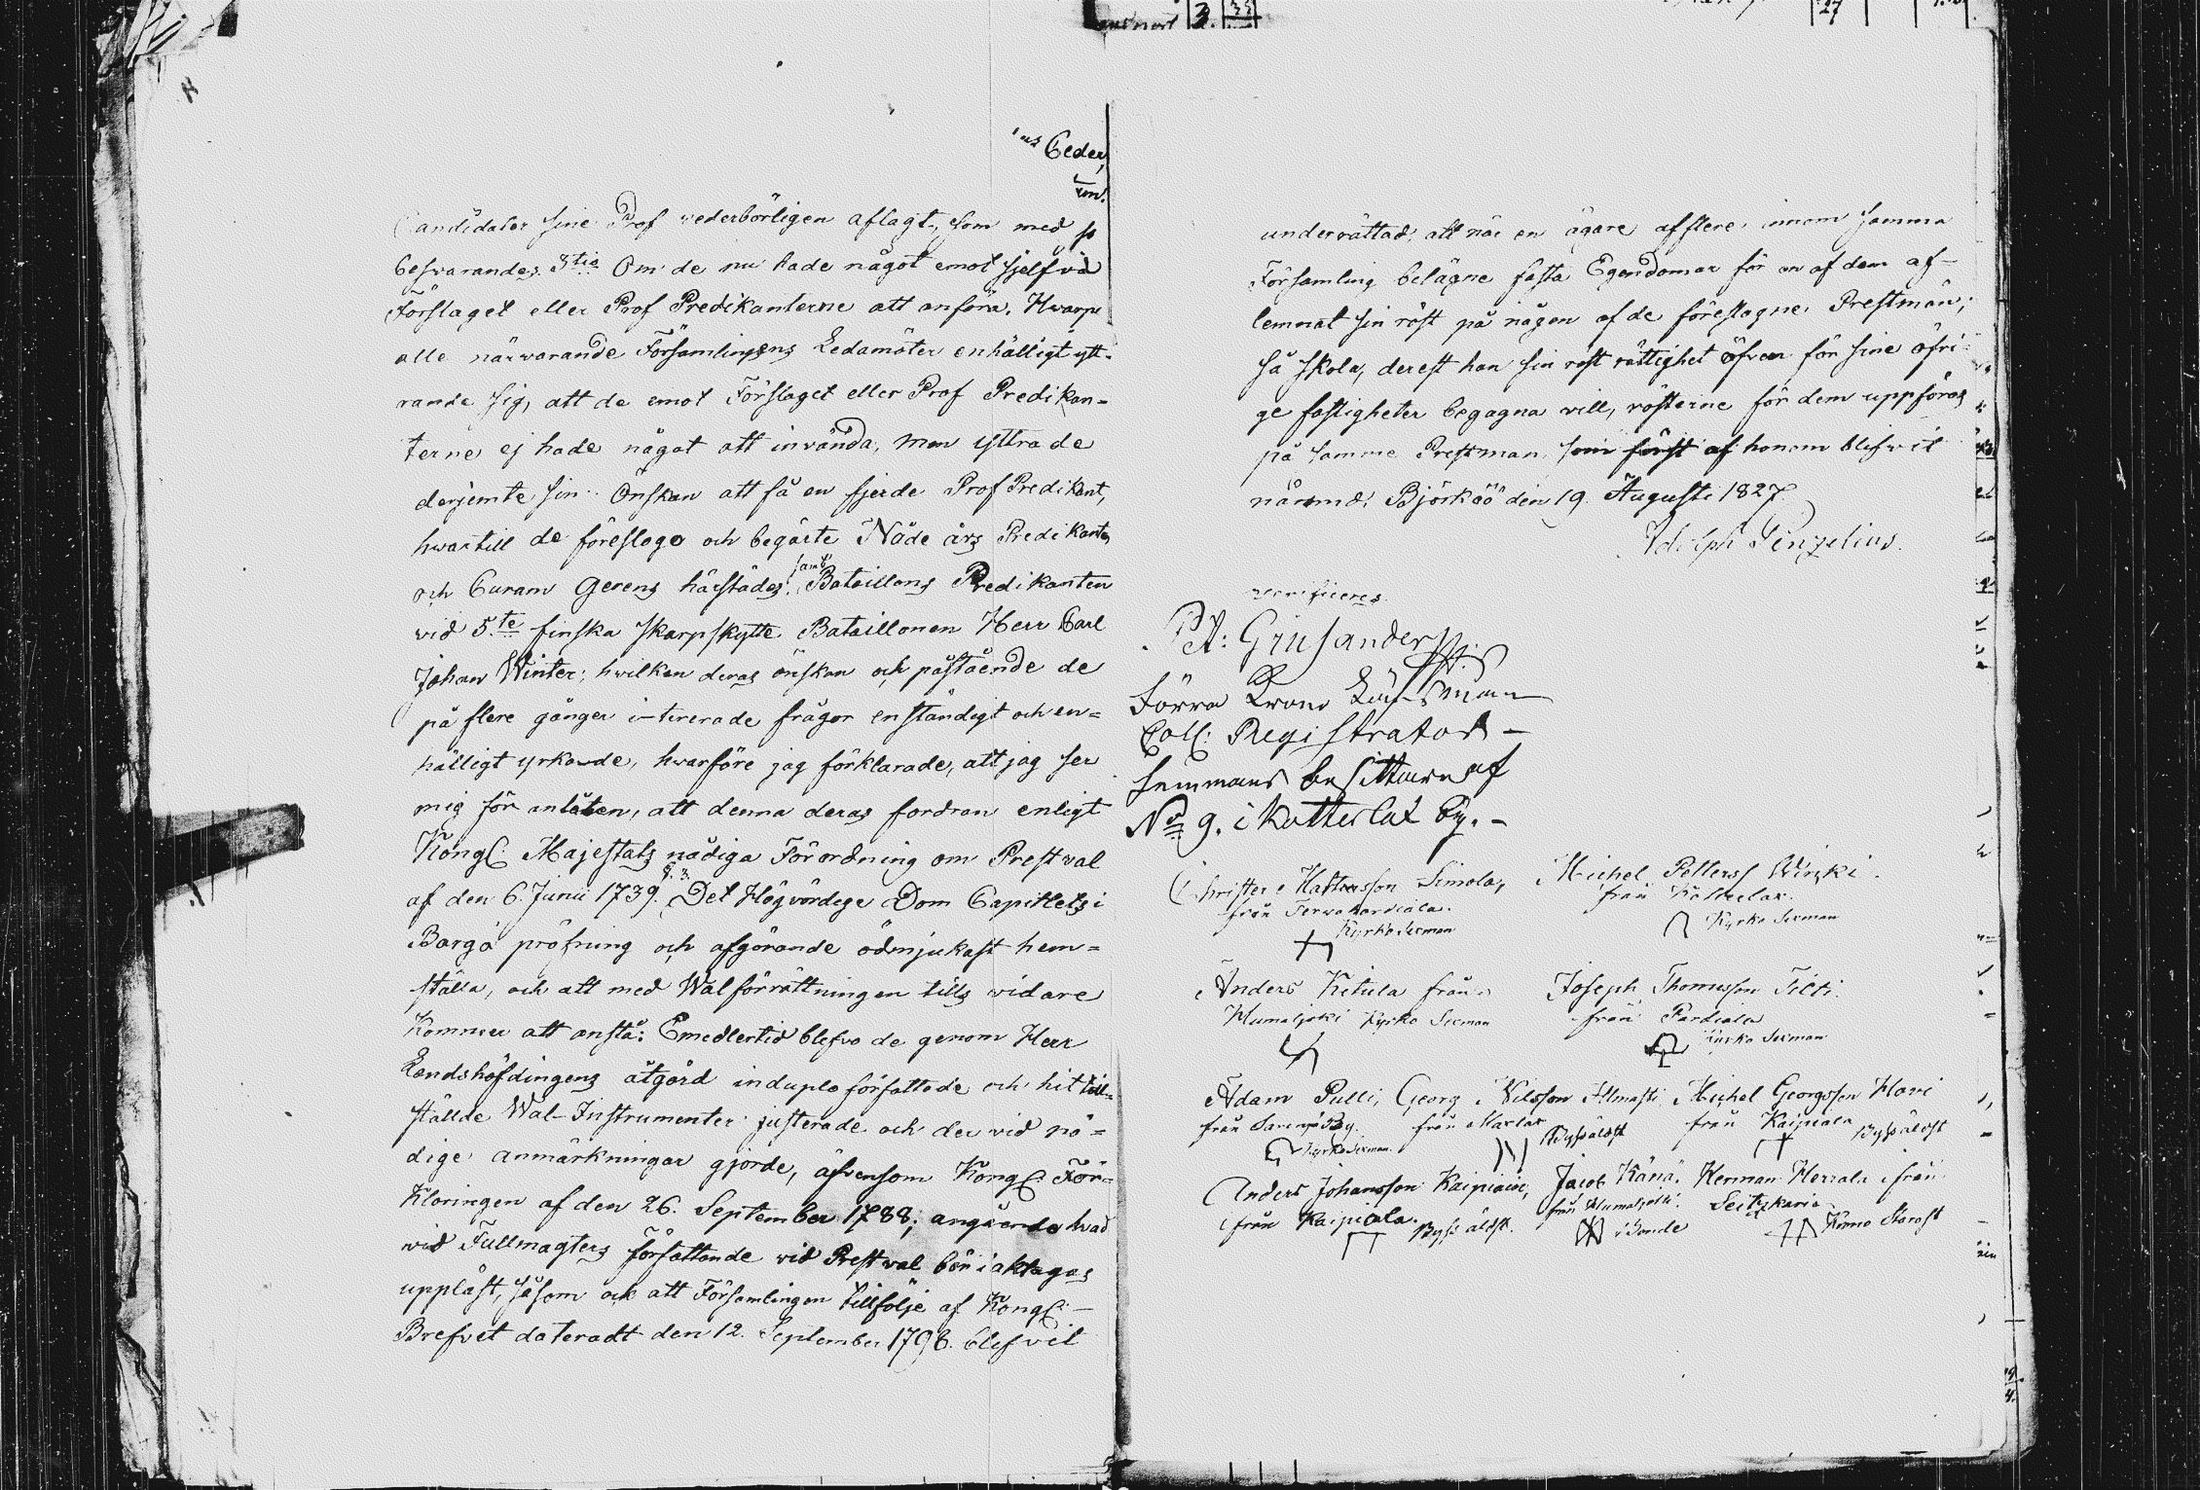 Eeder,
Candidater sine Prof vederbörligen aflagt, som med
besvarandes 3tio Om de nu hade något emot sjelfva
Förslaget eller Prof Predikanterne att anföra. Hvarpå
alle närvarande Församlingens Ledamöter enhälligt ytt-
rande sig, att de emot Förslaget eller Prof Predikan=
terne ej hade något att invända, men yttrade
derjemte sin Önskan att få en fjerde Prof Predikant,
hvartill de föreslogo och begärte Nåde års Predikanten
och Curam Gerens härstädes, samt Bataillons Predikanten
vid 5.te finska skarpskytte Bataillonen Herr Carl
Johan Winter; hvilken deras önskan och påstående de
på flere gånger i-tererade frågor enständigt och en=
hälligt yrkande, hvarföre jag förklarade, att jag ser
mig för anlåten, att denna deras fordran enligt
Kongl: Majestäts nådiga Förordning om Prestval
af den 6. Junii 1739. §. 3. Det Högvördige Dom Capitlets i
Borgå pröfning och afgörande ödmjukast hem=
ställa, och att med Walförrättningen tills vidare
Kommer att anstå: Emedlertid blefvo de genom Herr
Landshöfdingens åtgärd in duplo författade och hit till=
ställde Wal-Instrumenter justerade och der vid nö=
dige anmärkningar gjorde, äfvensom Kongl: För=
klaringen af den 26. September 1788; angående hvad
vid Fullmagters författande vid Prestval bör iakttagas
uppläst, såsom ock att Församlingen tillfölje af Kongl:-
Brefvet dateradt den 12. September 1798. blefvit
underrättad, att när en ägare af flere inom samma
Församling belägne fasta Egendomar för en af dem af-
lemnat sin röst på någon af de föreslagne Prestmän;
så skola, derest han sin röst rättighet öfven för sine öfri-
ge fastigheter begagna vill, rösterne för dem uppföras
på samme Prestman som först af honom blifvit
nämnd, Björköö den 19. Augusti 1827
Adolph Penzelius.
verifieras
Pt: Grusander
Förra Krono Länsman
Coll: Registrator -
hemmans besittare af
No 9. i Kotterlax By. -
Christer Mattsson Simola, Michel Petterss
från Kyrko Sexman
från Kyrko Sexman
Anders Ketula från Joseph Thomasson Tilti
Humaljoki Kyrko Sexman från
Kyrko Sexman
Adam Pulli, Georg Nilsson Ilmasti Michel Georgsson Hovi
från By. från från Kaipiala
Kyrko Sexman Byssäldst Byssäldst
Anders Johansson Kaipiain, Jacob Känä, Herman Herrala ifrån
från Kaipiala. från Humaljoki. Seitskarie
Byss äldst. Bonde Krono Starost